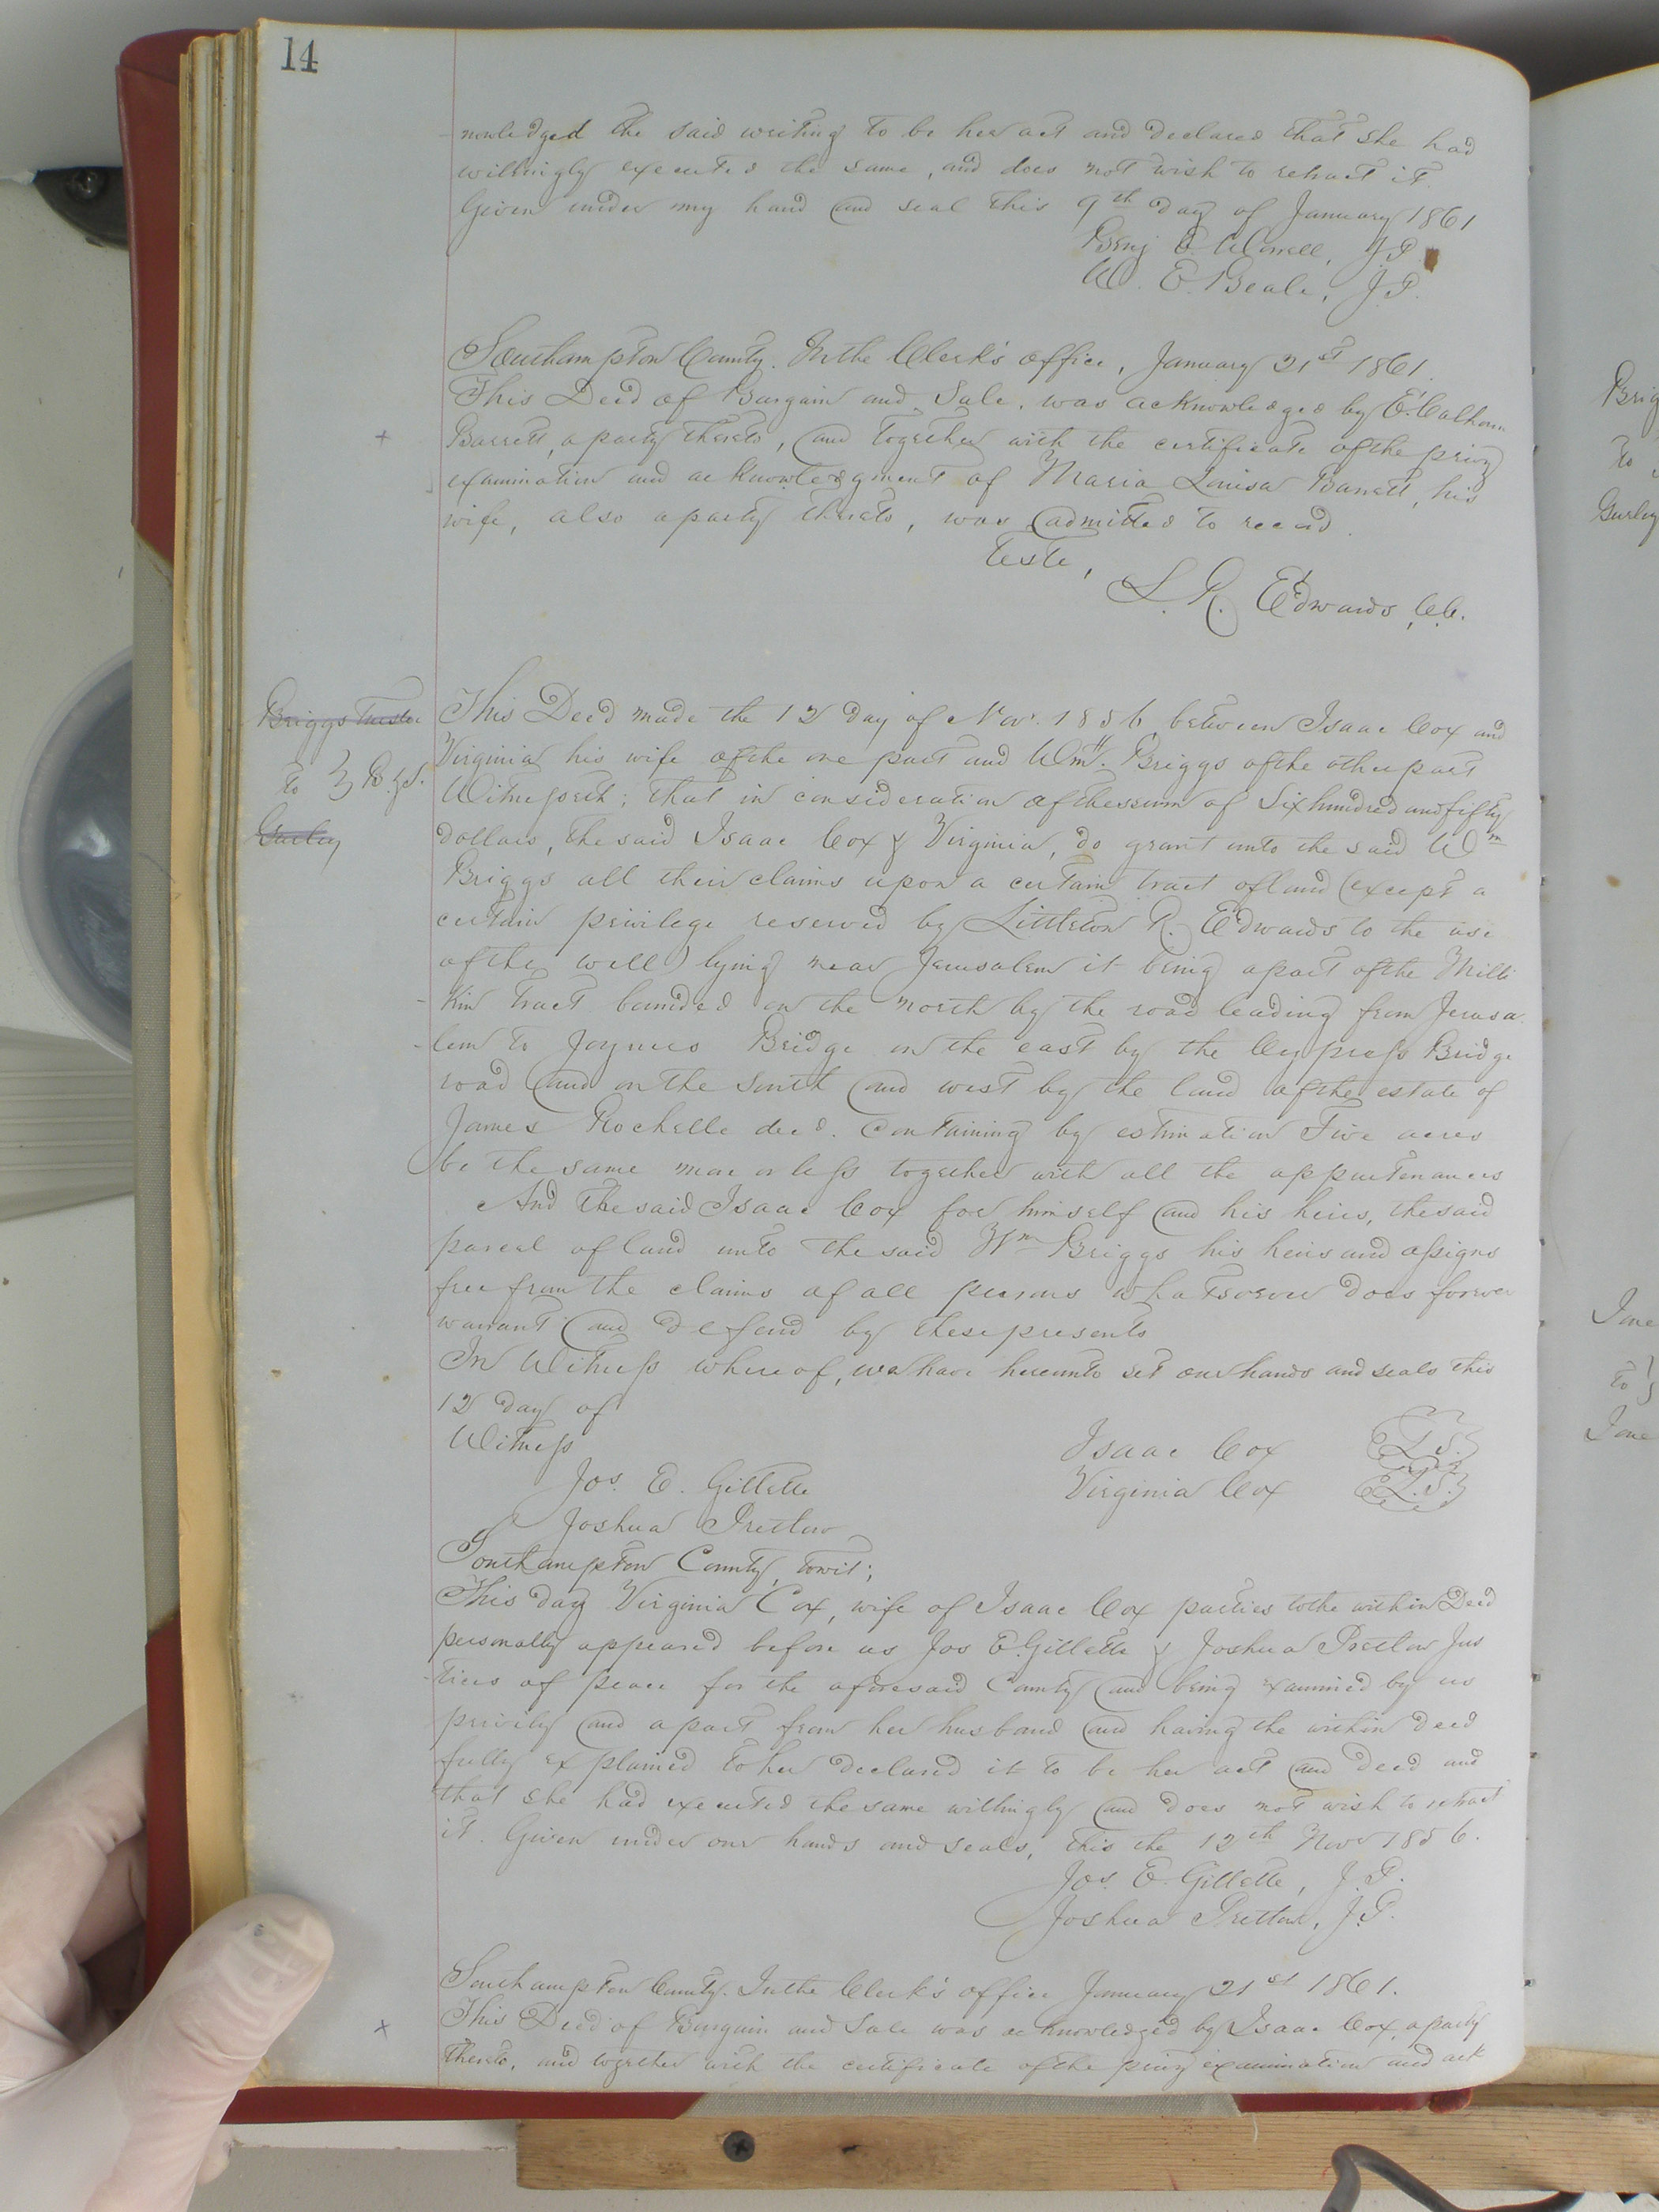 14
nowledged the said writing to be her act and declared that she had
willingly executed the same, and does not wish to retract it.
Given under my hand and seal this 9th day of January 1861
Benj E. Worrell, J.P.
W. E. Beale, J.P.
Southampton County. In the Clerk's office, January 21st 1861.
This Deed of Bargain and Sale, was acknowledged by E. Calhoun
Barrett, a party thereto, and together with the certificate of the privy
examination and acknowledgment of Maria Louisa Barrett, his
wife, also a party thereto, was admitted to record.
Teste,
L. R. Edwards, C.C.
Briggs Trustee
to } B. & S.
Gurley
This Deed made the 12 day of Nov. 1856, between Isaac Cox and
Virginia his wife of the one part and Wm. Briggs of the other part
Witnesseth; that in consideration of the sum of Six hundred and fifty
dollars, the said Isaac Cox & Virginia, do grant unto the said Wm
Briggs all their claims upon a certain tract of land (except a
certain privilege reserved by Littleton R. Edwards to the use
of the well) lying near Jerusalem it being a part of the Milli
-kin tract bounded on the north by the road leading from Jerusa
-lem to Joyners Bridge on the east by the Cypress Bridge
road and on the South and west by the land of the estate of
James Rochelle decd. containing by estimation Five acres
be the same more or less together with all the appurtenances
And the said Isaac Cox for himself and his heirs, the said
parcel of land unto the said Wm Briggs his heirs and assigns
free from the claims of all persons whatsoever does forever
warrant and defend by these presents
In Witness whereof, we have hereunto set our hands and seals this
12 day of
Witness
Isaac Cox {L.S.}
Jos. E. Gillette
Virginia Cox {L.S.}
Joshua Pretlow
Southampton County, towit;
This day Virginia Cox, wife of Isaac Cox parties to the within Deed
personally appeared before us Jos E. Gillette & Joshua Pretlow Jus
-tices of peace for the aforesaid County and being examined by us
privily and apart from her husband and having the within deed
fully explained to her declared it to be her act and deed and
that she had executed the same willingly and does not wish to retract
it. Given under our hands and seals, this the 12th Novr 1856.
Jos. E. Gillette, J.P.
Joshua Pretlow, J.P.
Southampton County. In the Clerk's office January 21st 1861.
This Deed of Bargain and Sale was acknowledged by Isaac Cox, a party
thereto, and together with the certificate of the privy examination and ack
Brig
to
Gurley
Jane
to }
Jane